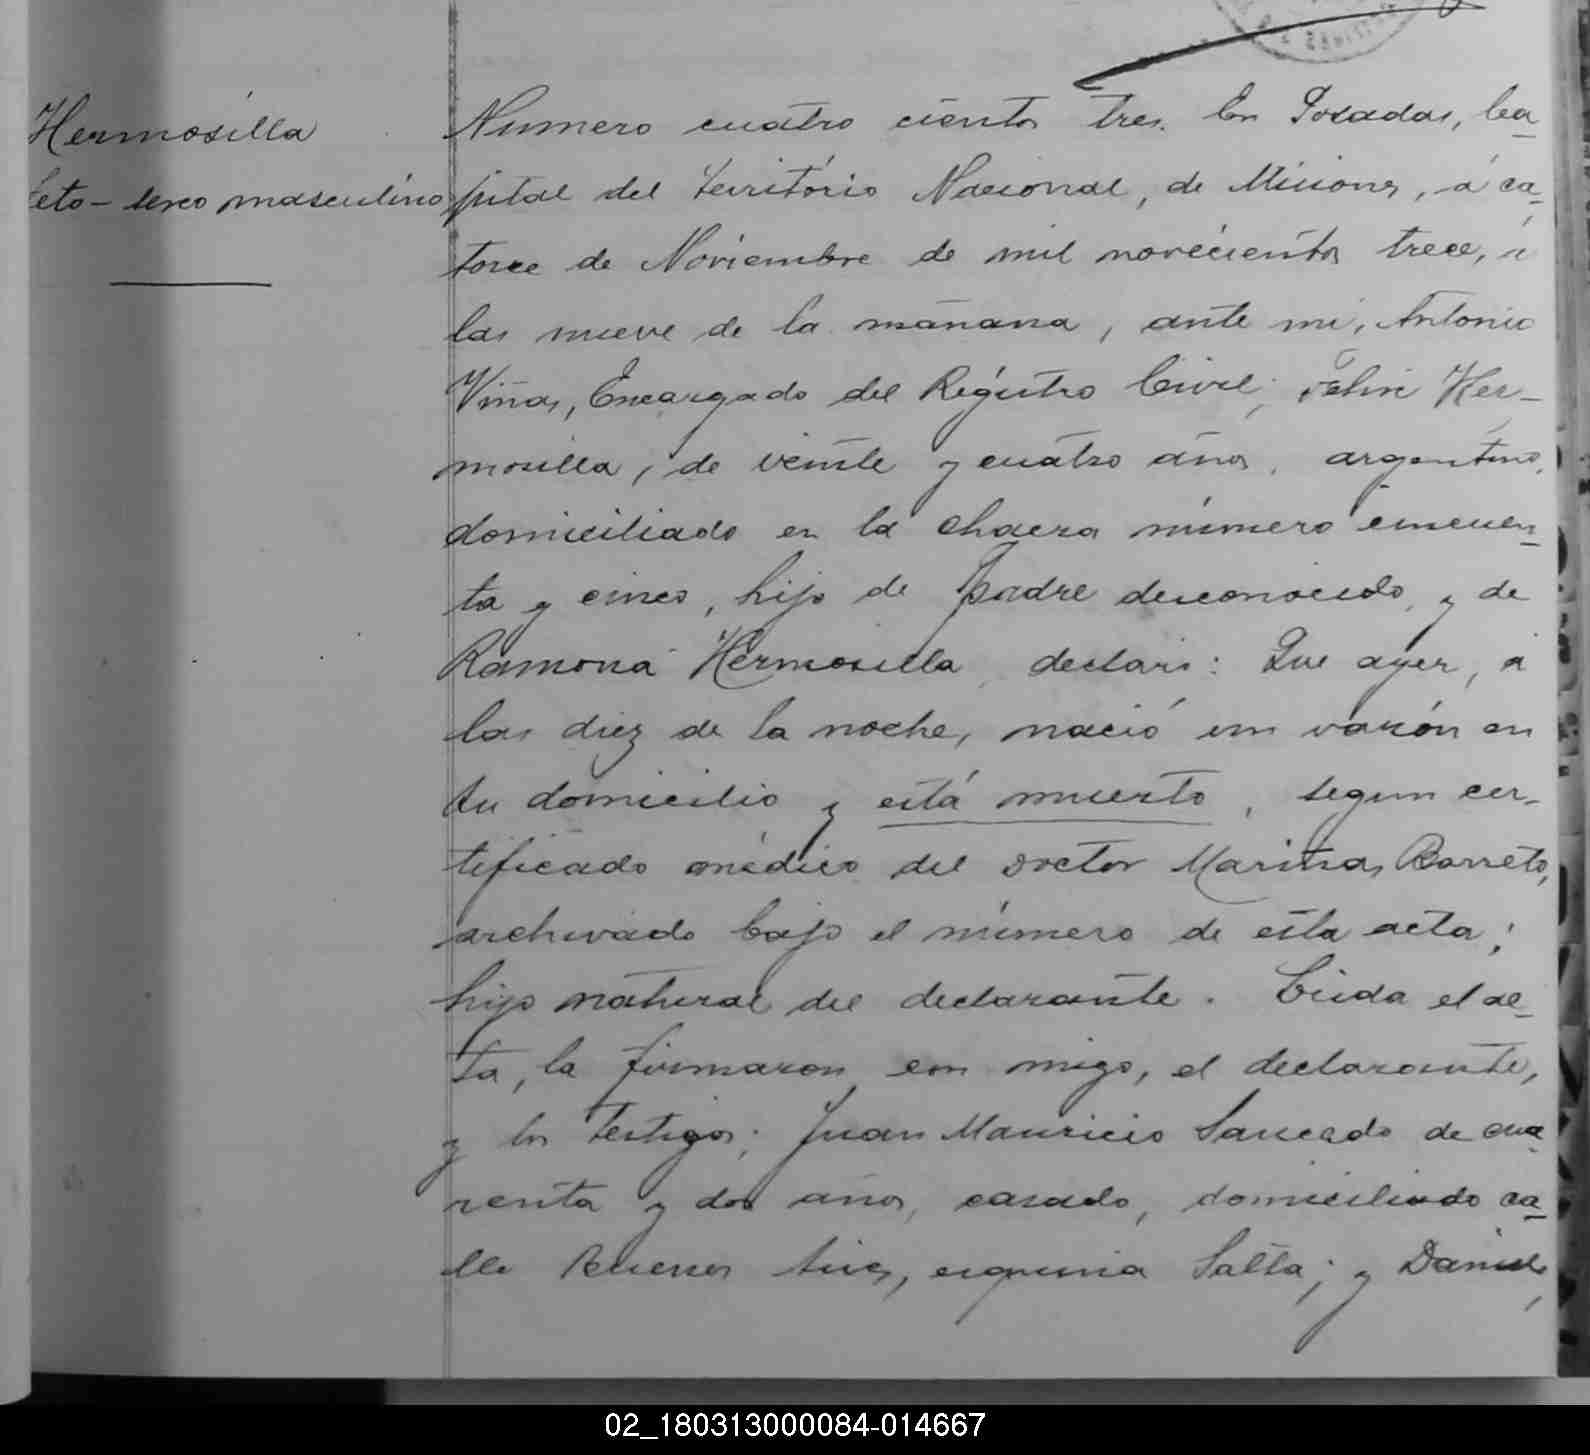 Hermosilla
feto - sexo masculino
Numero cuatro cientos tres. En Posadas, Ca-
pital del Territorio Nacional, de Misiones, á ca-
torce de Noviembre de mil novecientos trece, á
las nueve de la mañana, ante mi, Antonio
Viñas, Encargado del Registro Civil; Her-
mosilla, de veinte y cuatro años, argentino,
domiciliado en la chacra número cincuen-
ta y cinco, hijo de padre desconocido, y de
Ramona Hermosilla, declaró: Que ayer, á
las diez de la noche, nació un varón en
su domicilio y está muerto, segun cer-
tificado médico del Doctor Mariño Barreto,
archivado bajo el número de esta acta;
hijo natural del declarante. Leida el ac-
ta, la firmaron con migo, el declarante,
y los testigos; Juan Mauricio Saucedo de cua-
renta y dos años, casado, domiciliado ca-
lle Buenos Aires, esquina Salta; y Daniel
02_180313000084-014667